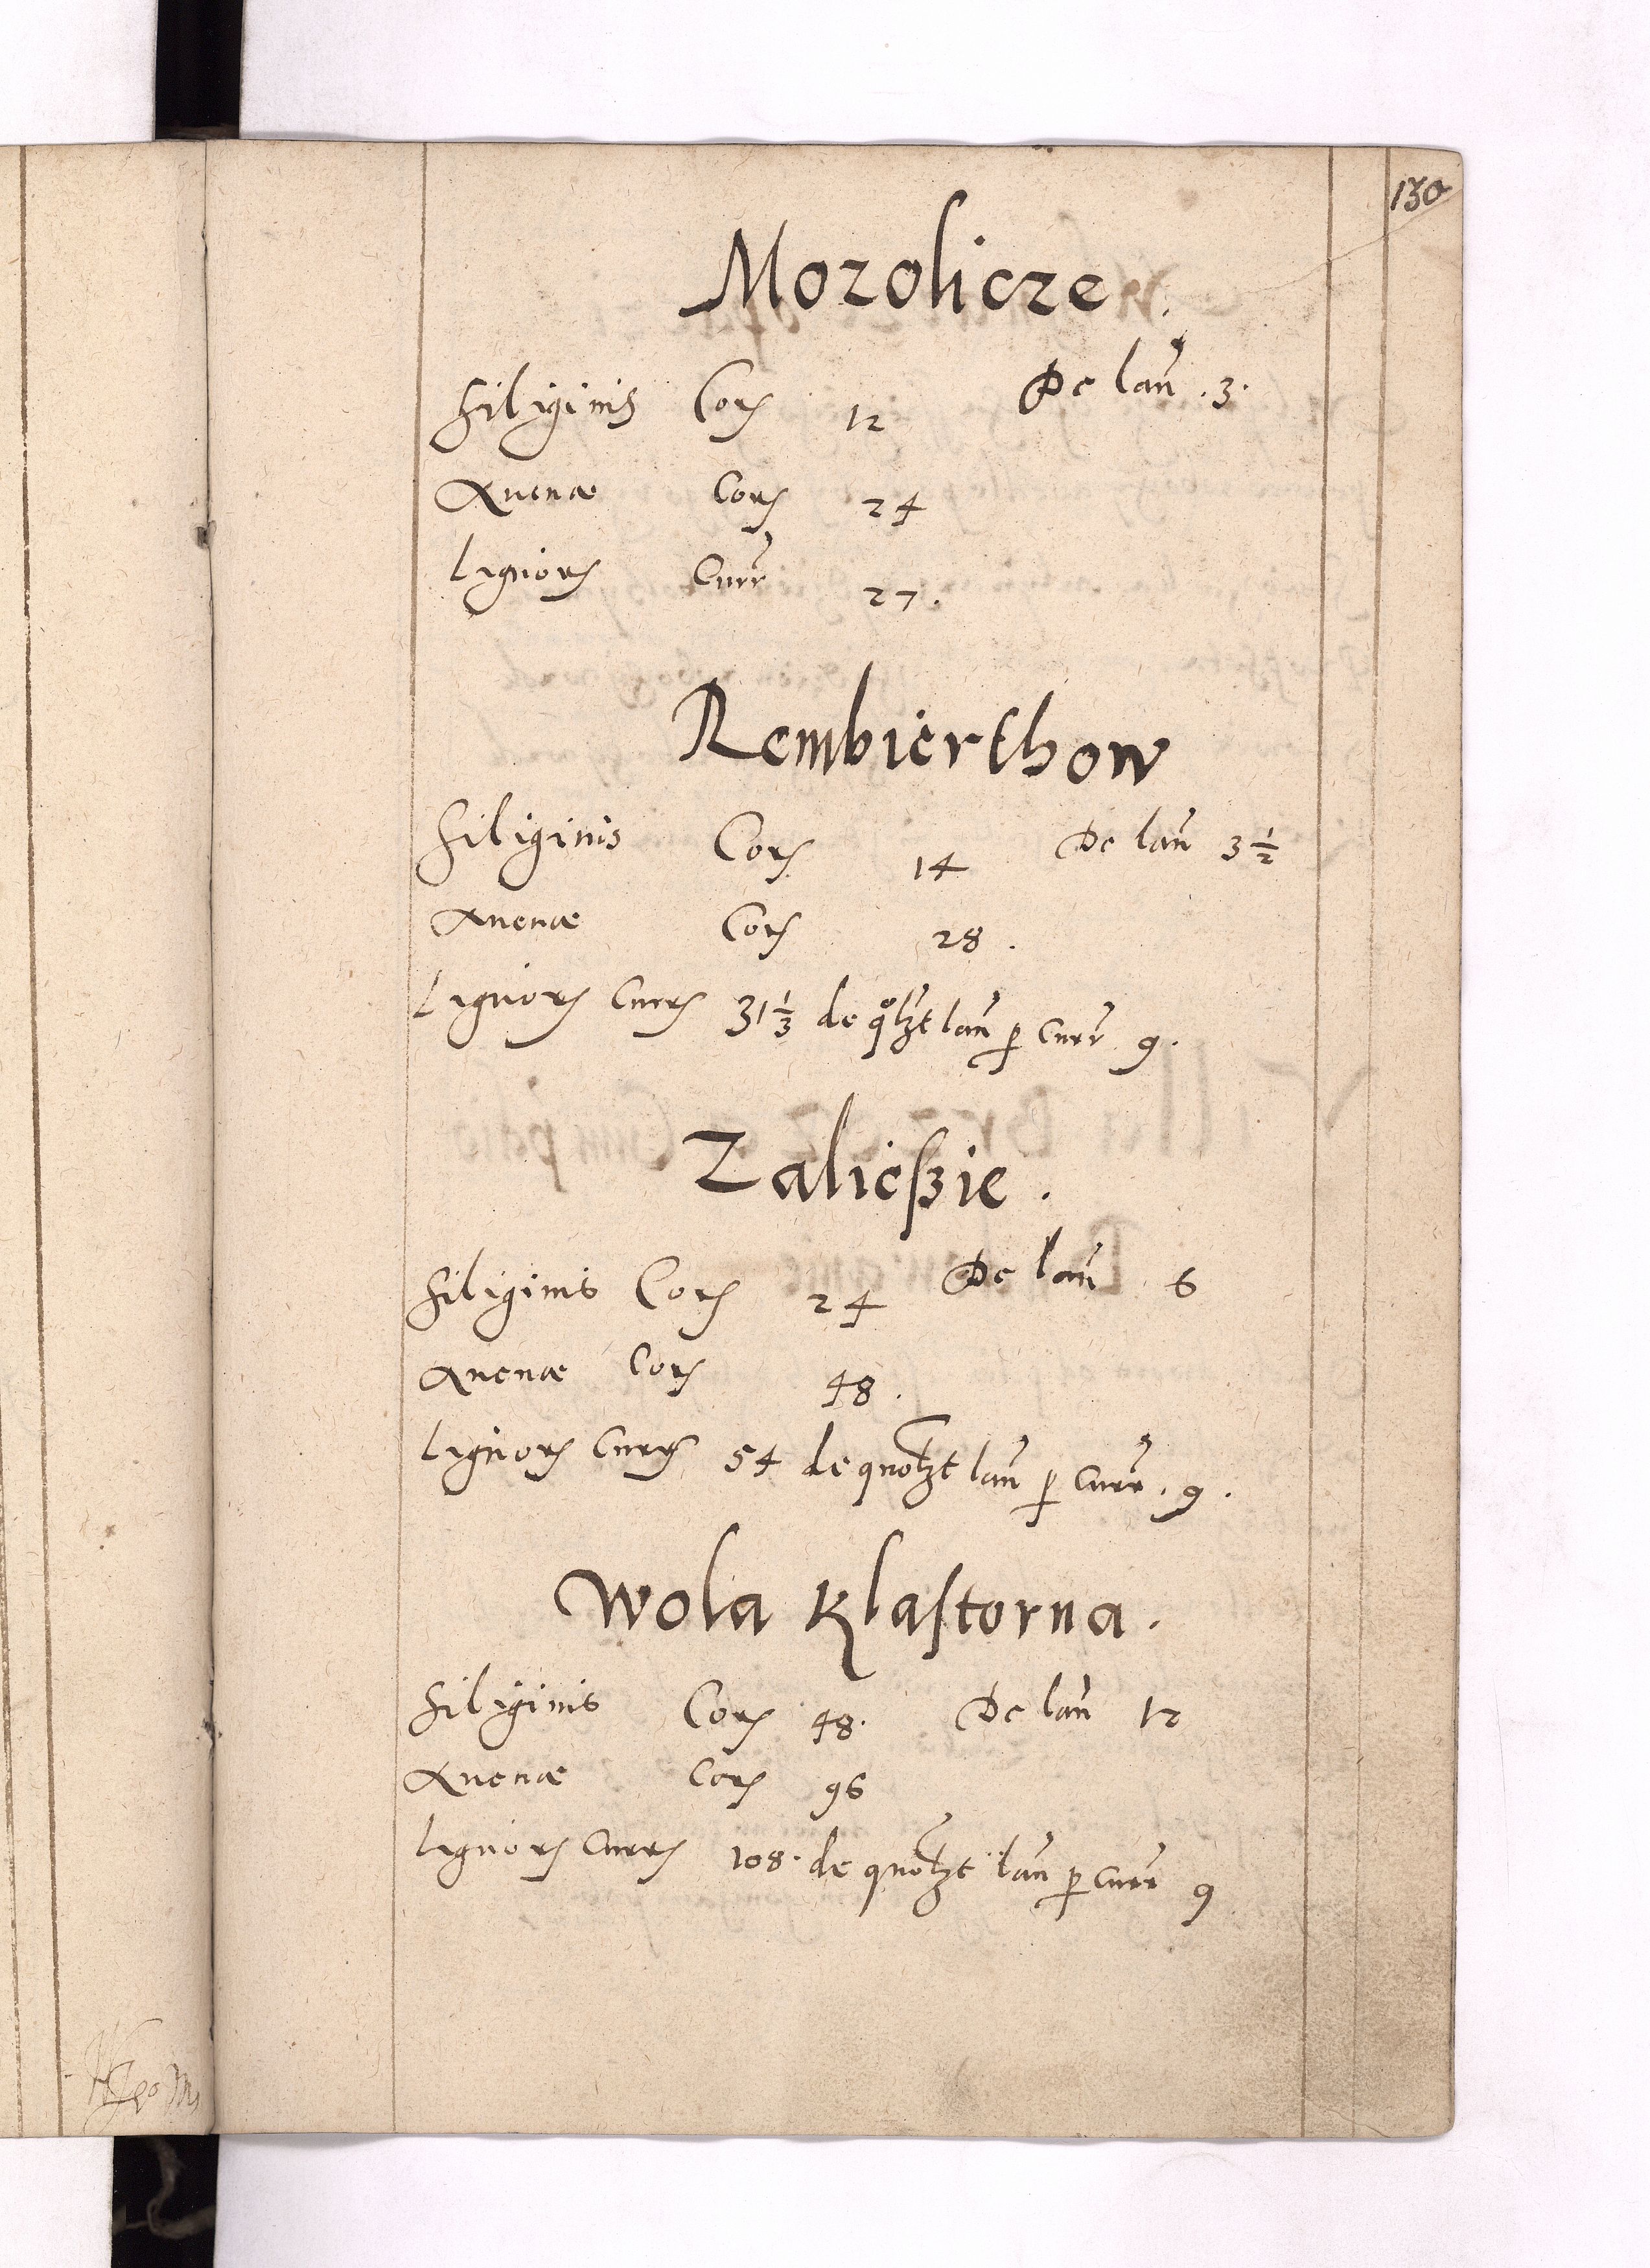 130
Mozolicze.
Siliginis Corꝝ 12 De lan̄ .3.
Auenæ Corꝝ 24
Lignorꝝ Curr̄ 27.
Rembierthow
Siliginis Corꝝ 14 De lan̄ 3 1/2
Auenæ Corꝝ 28.
Lignorꝝ Currꝝ 31 1/3 de qᵒlꝫt lan̄ ꝑ Curr̄ 9.
Zaließie.
Siliginis Corꝝ 24 De lan̄ 6
Auenæ Corꝝ 48.
Lignorꝝ Currꝝ 54 de quolꝫt lan̄ ꝑ Curr̄. 9.
Wola Klastorna.
Siliginis Corꝝ 48. De lan̄ 12
Auenæ Corꝝ 96
Lignorꝝ Currꝝ 108. de quolꝫt lan̄ ꝑ Curr̄ 9